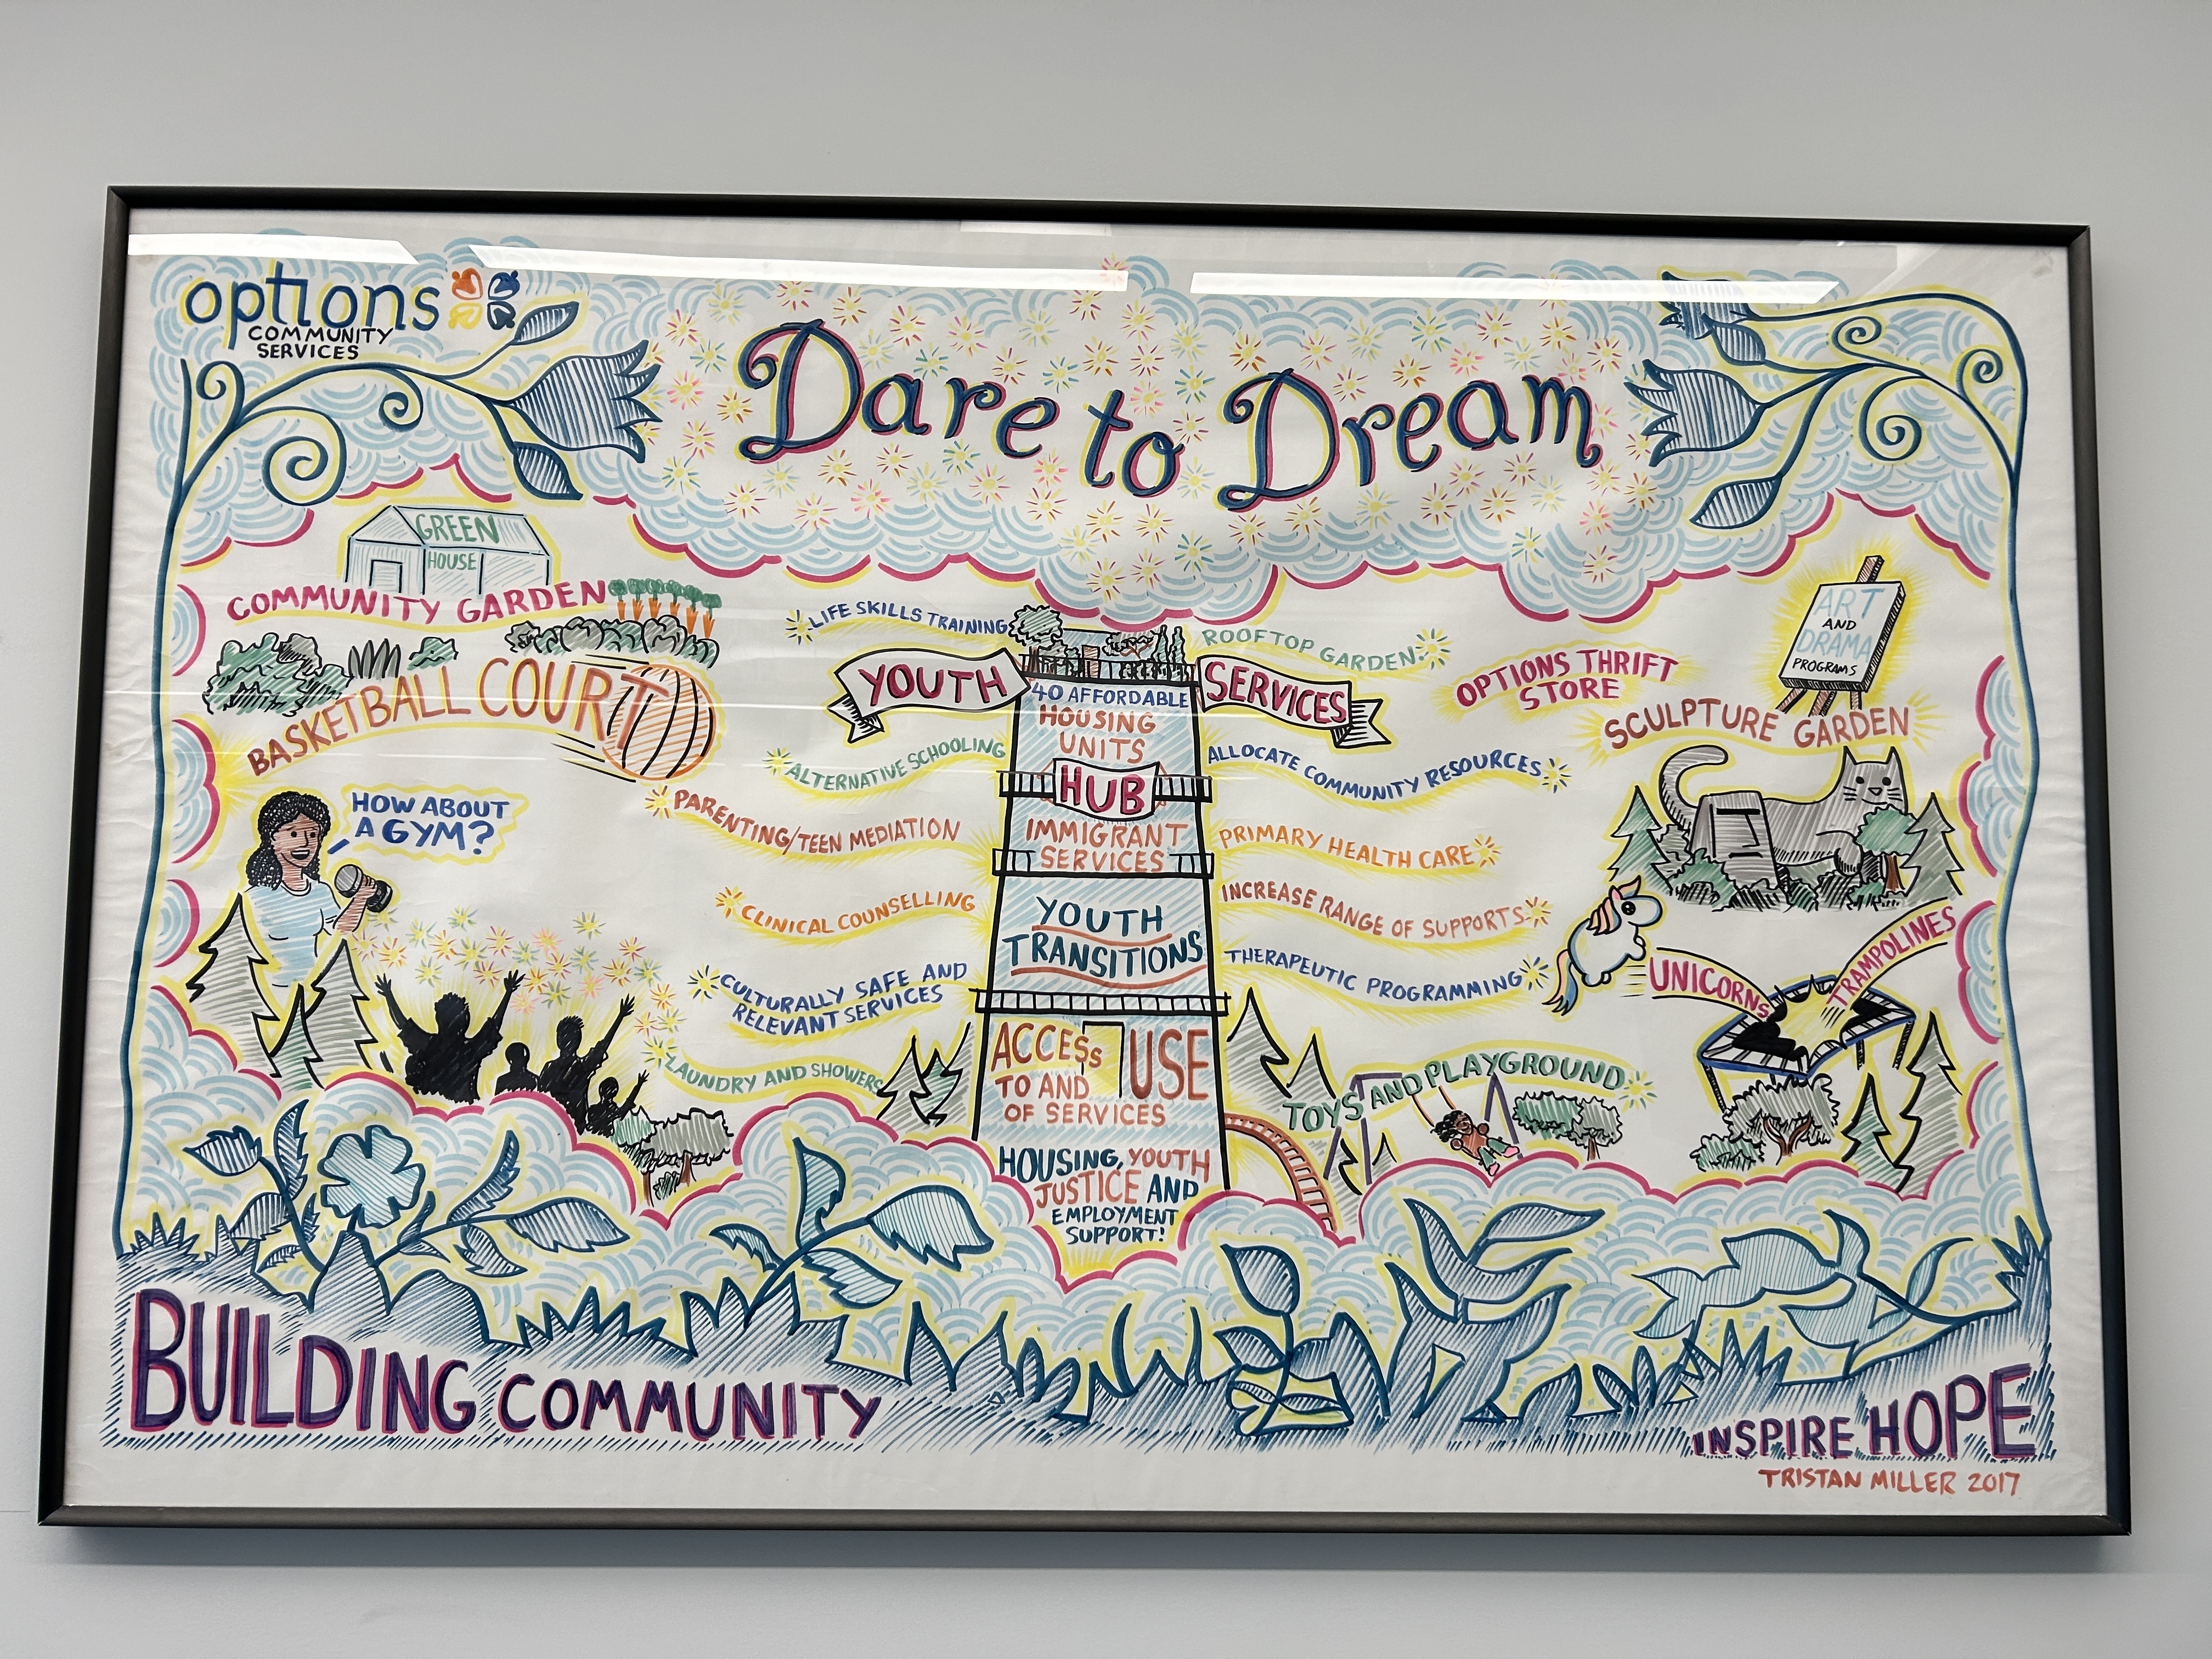 options
COMMUNITY
SERVICES
Dare to Dream
GREEN
HOUSE
COMMUNITY GARDEN
BASKETBALL COURT
HOW ABOUT
A GYM?
LIFE SKILLS TRAINING
YOUTH
ALTERNATIVE SCHOOLING
PARENTING/TEEN MEDIATION
CLINICAL COUNSELLING
CULTURALLY SAFE AND
RELEVANT SERVICES
LAUNDRY AND SHOWERS
40 AFFORDABLE
HOUSING
UNITS
HUB
IMMIGRANT
SERVICES
YOUTH
TRANSITIONS
ACCESS USE
TO AND
OF SERVICES
HOUSING, YOUTH
JUSTICE AND
EMPLOYMENT
SUPPORT!
ROOFTOP GARDEN
SERVICES
ALLOCATE COMMUNITY RESOURCES
PRIMARY HEALTH CARE
INCREASE RANGE OF SUPPORTS
THERAPEUTIC PROGRAMMING
TOYS AND PLAYGROUND
OPTIONS THRIFT
STORE
ART
AND
DRAMA
PROGRAMS
SCULPTURE GARDEN
UNICORNS
TRAMPOLINES
BUILDING COMMUNITY
INSPIRE HOPE
TRISTAN MILLER 2017